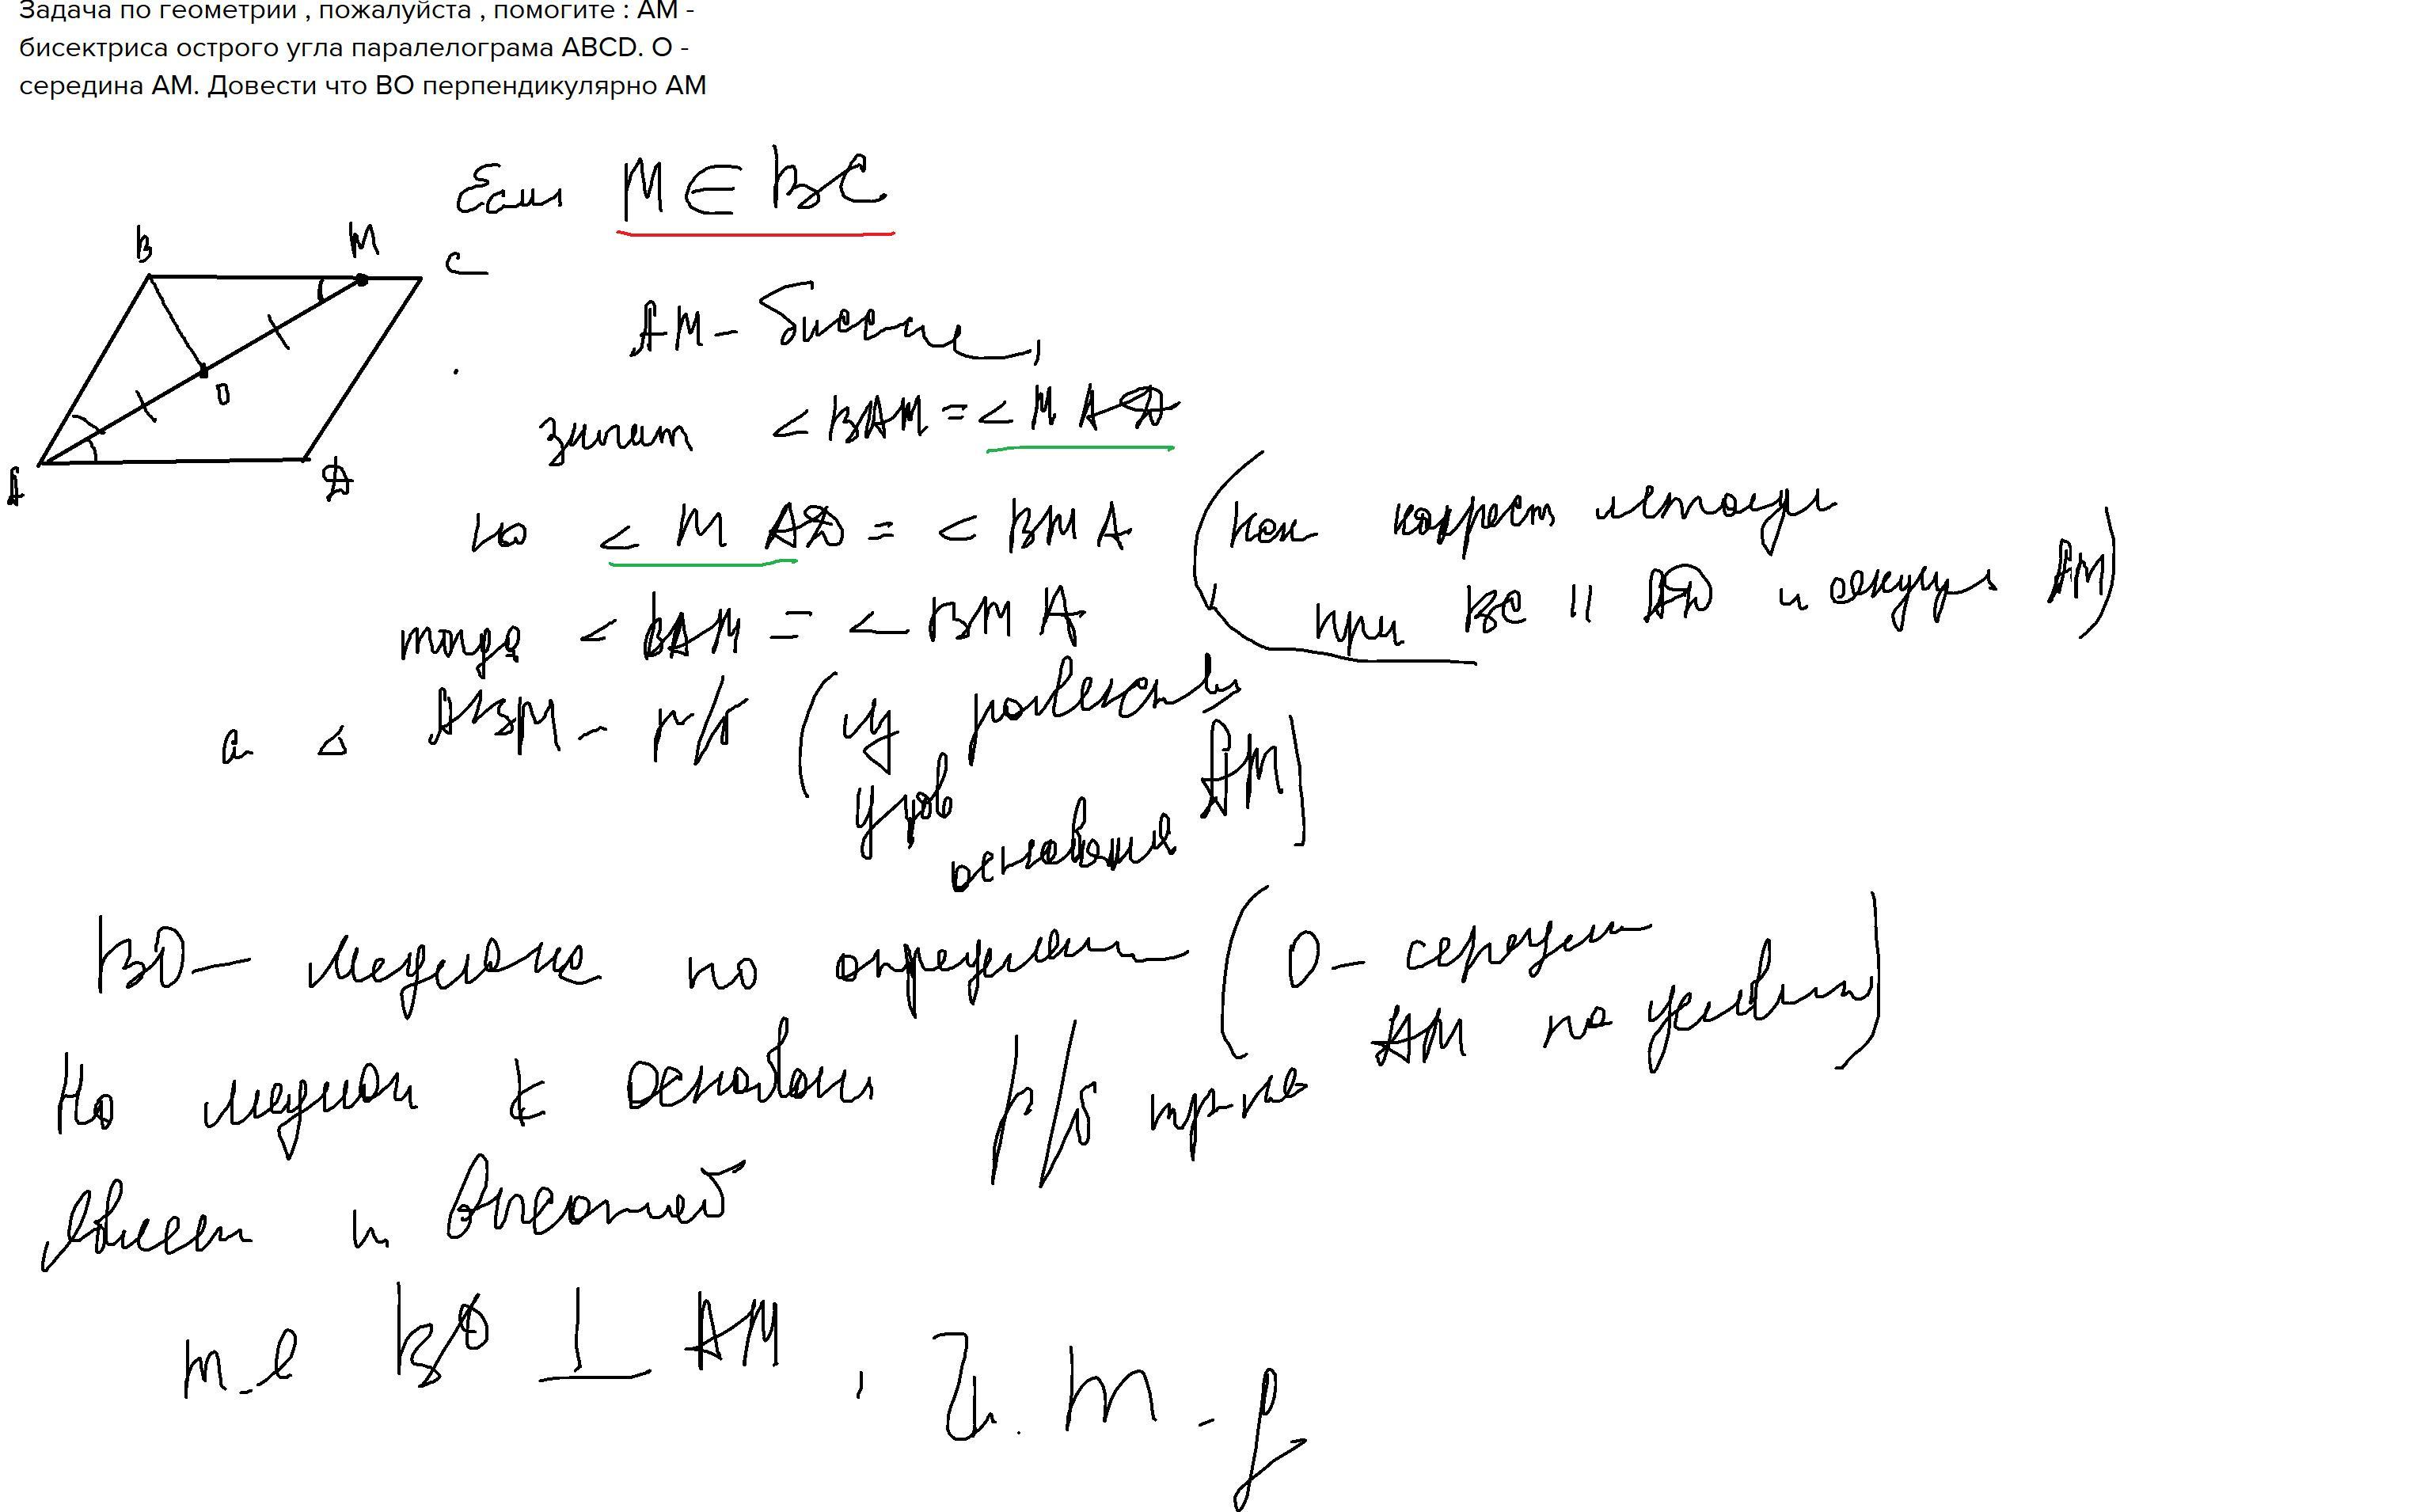 Задача по геометрии , пожалуйста , помогите : АМ -
бисектриса острого угла паралелограма ABCD. О -
середина АМ. Довести что ВО перпендикулярно АМ
Если M ∈ BC
B M C
O
A D
AM - биссек,
значит < BAM = < MAD
но < MAD = < BMA (как
при BC || AD и секущ AM)
тогда < BAM = < BMA
а △ ABM - р/б (из равенства
углов
основания AM)
BO - медиана по определен (O - середин
AM по условию)
Но медиан к основан р/б тр-ке
являет и высотой
т.е BO ⊥ AM , ч.т.д